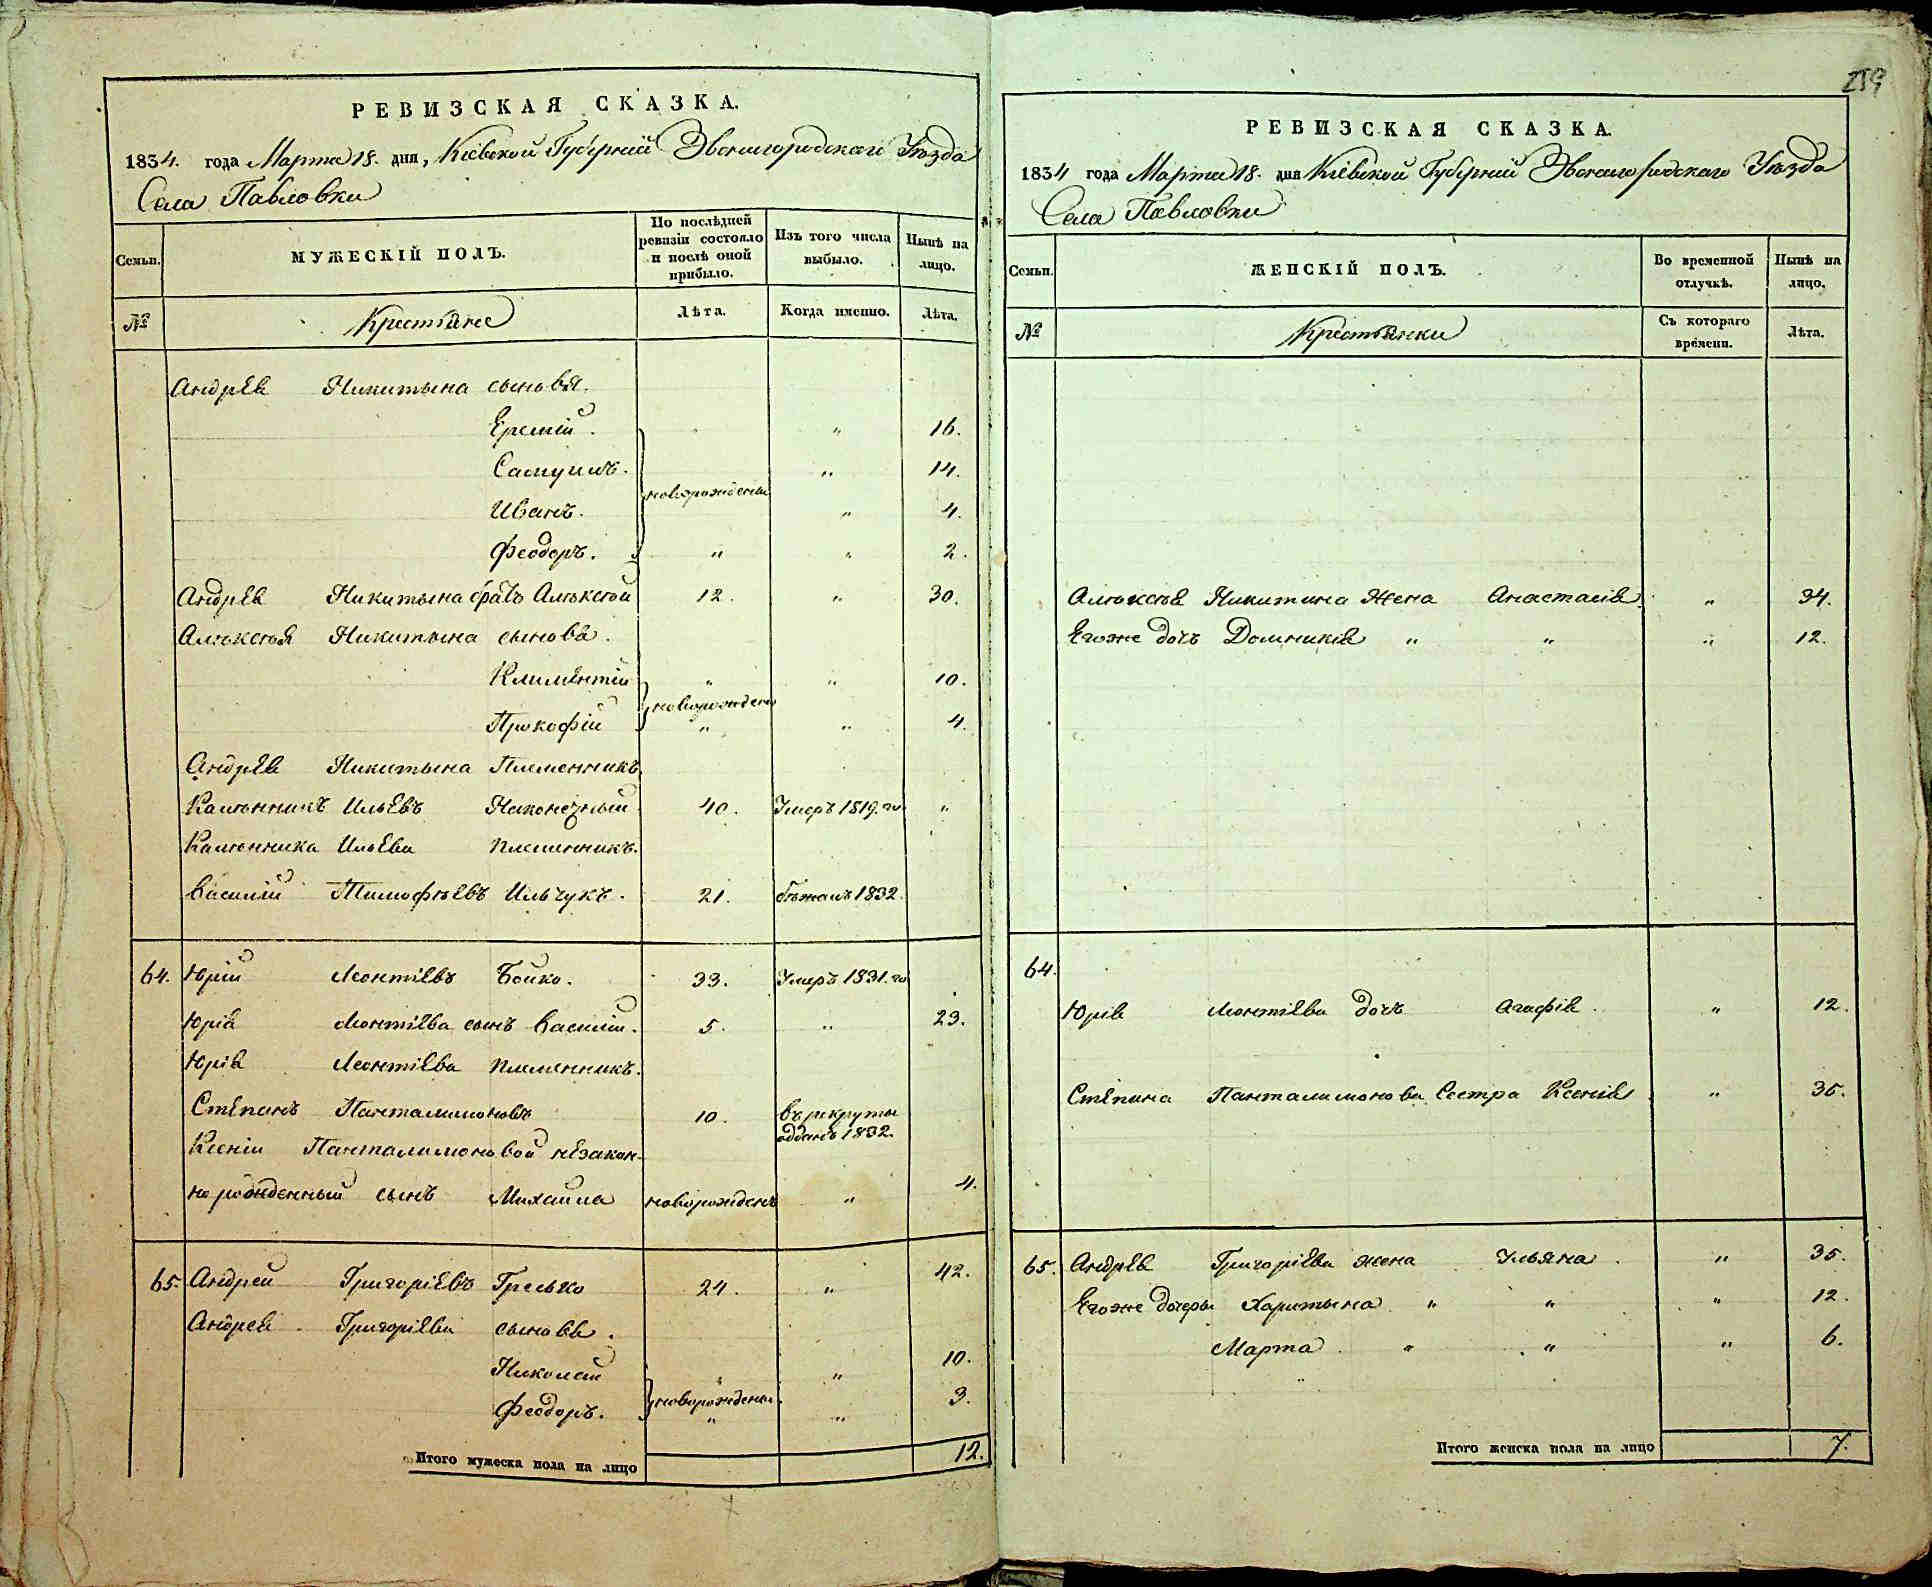 РЕВИЗСКАЯ СКАЗКА.
1834. года Марта 18. дня, Кіевской Губерніи Звенигородскаго Уѣзда
Села Павловки
Семьи.
МУЖЕСКІЙ ПОЛЪ.
По послѣдней ревизіи состояло и послѣ оной прибыло.
Изъ того числа выбыло.
Нынѣ на лицо.
№
Крестьяне
Лѣта.
Когда именно.
Лѣта.
Андрѣя Никитына сыновья.
Еремій. " 16.
Самуилъ. " 14.
новорожденны
Иванъ. " 4.
Феодоръ. " " 2.
Андрѣя Никитына братъ Алѣксѣй 12. " 30.
Алѣксѣя Никитына сыновья.
Климентій " " 10.
новорожденны
Прокофій " " 4.
Андрѣя Никитына Племенникъ
Калѣнникъ Ильевъ Наконечный 40. Умеръ 1819. го "
Калѣнника Ильева племенникъ.
Василій Тимофѣевъ Ильчукъ. 21. бѣжалъ 1832.
64. Юрій Леонтіевъ Бойко. 33. Умеръ 1831. го
Юрія Леонтіева сынъ Василій. 5. " 23.
Юрія Леонтіева племенникъ.
Степанъ Панталимоновъ 10. въ рекруты
отданъ 1832.
Ксеніи Панталимоновой незакон-
но рожденный сынъ Михайла новорожденъ " 4.
65. Андрей Григоріевъ Гресько 24. " 42.
Андрея Григоріева сыновья.
Николай " " 10.
новорожденны
Феодоръ. " " 3.
Итого мужеска пола на лицо 12.
259
РЕВИЗСКАЯ СКАЗКА.
1834 года Марта 18. дня Кіевской Губерніи Звенигородскаго Уѣзда
Села Павловки
Семьи.
ЖЕНСКІЙ ПОЛЪ.
Во временной отлучкѣ.
Нынѣ на лицо.
№
Крестьянки
Съ котораго времени.
Лѣта.
Алѣксѣя Никитина Жена Анастасія. " 34.
Егоже дочь Домникія " " " 12.
64.
Юрія Леонтіева дочь Агафія. " 12.
Степана Панталимонова Сестра Ксенія " 35.
65. Андрея Григоріева жена Ульяна. " 35.
Егоже дочеры Харитына " " " 12.
Марта " " " 6.
Итого женска пола на лицо 7.